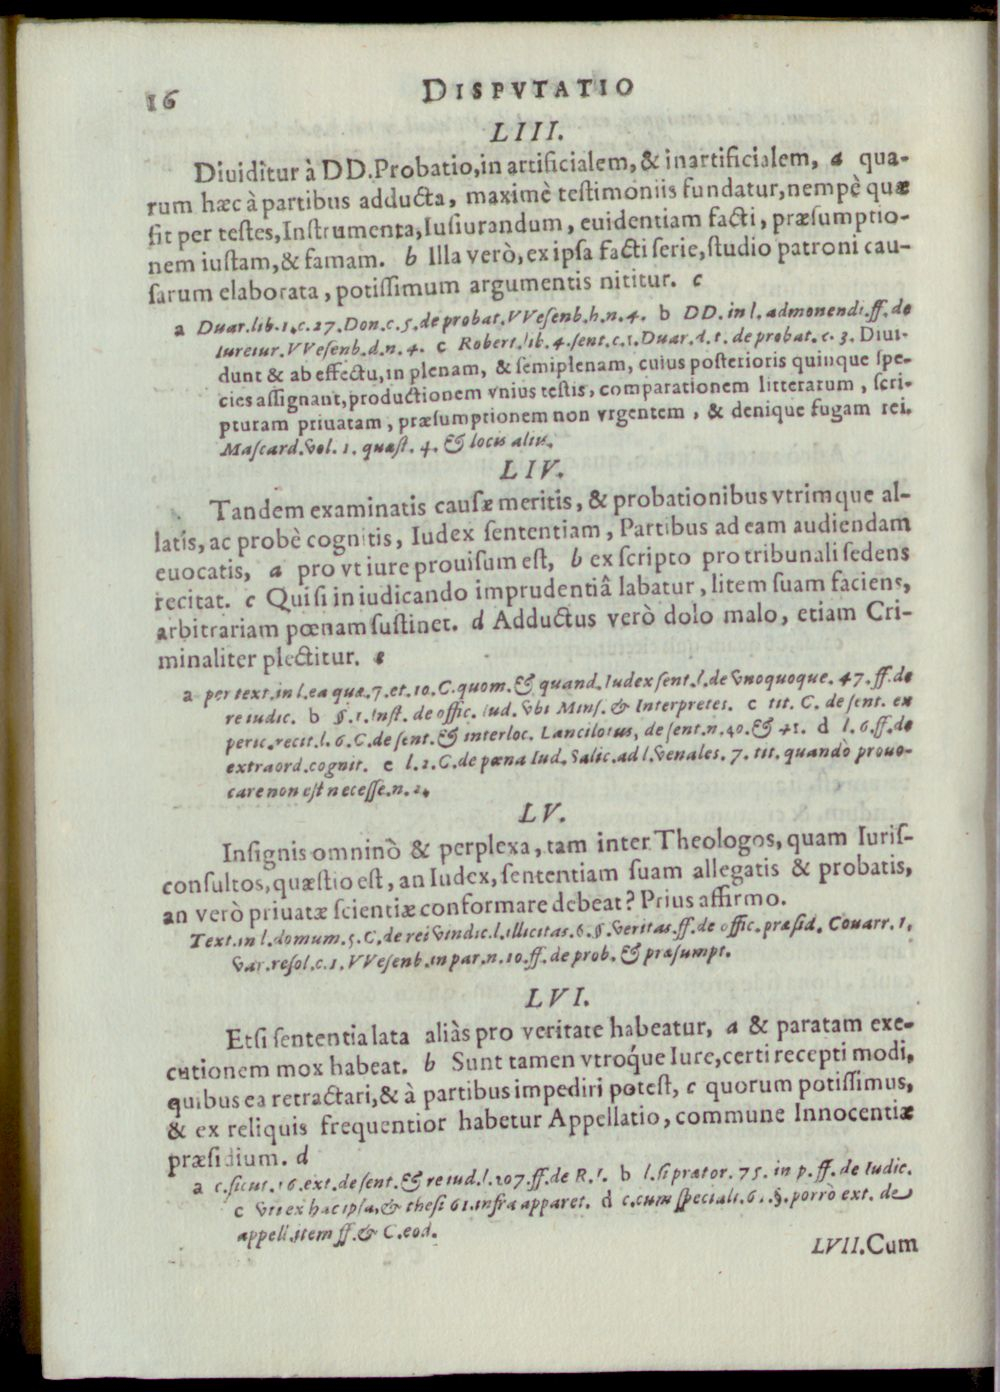 16 DISPVTATIO
LIII.
Diuiditur à DD. Probatio, in artificialem, & inartificialem, a qua-
rum hæc à partibus adducta, maximè testimoniis fundatur, nempè quæ
fit per testes, Instrumenta, Iusiurandum, euidentiam facti, præsumptio-
nem iustam, & famam. b Illa verò, ex ipsa facti serie, studio patroni cau-
sarum elaborata, potissimum argumentis nititur. c
a Duar. lib. 1. c. 27. Don. c. 5. de probat. VVesenb. h. n. 4. b DD. in l. admonendi. ff. de
iureiur. VVesenb. d. n. 4. c Robert. lib. 4. sent. c. 1. Duar. d. t. de probat. c. 3. Diui-
dunt & ab effectu, in plenam, & semiplenam, cuius posterioris quinque spe-
cies assignant, productionem vnius testis, comparationem litterarum, scri-
pturam priuatam, præsumptionem non vrgentem, & denique fugam rei.
Mascard. vol. 1. quæst. 4. & locis aliis.
LIV.
Tandem examinatis causæ meritis, & probationibus vtrimque al-
latis, ac probè cognitis, Iudex sententiam, Partibus ad eam audiendam
euocatis, a pro vt iure prouisum est, b ex scripto pro tribunali sedens
recitat. c Qui si in iudicando imprudentiâ labatur, litem suam faciens,
arbitrariam pœnam sustinet. d Adductus verò dolo malo, etiam Cri-
minaliter plectitur. e
a per text. in l. ea quæ. 7. et. 10. C. quom. & quand. Iudex sent. l. de vnoquoque. 47. ff. de
re iudic. b §. 1. Inst. de offic. iud. vbi Mins. & Interpretes. c tit. C. de sent. ex
peric. recit. l. 6. C. de sent. & interloc. Lancilotus, de sent. n. 40. & 41. d l. 6. ff. de
extraord. cognit. e l. 2. C. de pœna Iud. Salic. ad l. venales. 7. tit. quandò prouo-
care non est necesse. n. 2.
LV.
Insignis omninò & perplexa, tam inter Theologos, quam Iuris-
consultos, quæstio est, an Iudex, sententiam suam allegatis & probatis,
an verò priuatæ scientiæ conformare debeat? Prius affirmo.
Text. in l. domum. 5. C. de rei vindic. l. illicitas. 6. §. veritas. ff. de offic. præsid. Couarr. 1.
var. resol. c. 1. VVesenb. in par. n. 10. ff. de prob. & præsumpt.
LVI.
Etsi sententia lata aliàs pro veritate habeatur, a & paratam exe-
cutionem mox habeat. b Sunt tamen vtroq́ue Iure, certi recepti modi,
quibus ea retractari, & à partibus impediri potest, c quorum potissimus,
& ex reliquis frequentior habetur Appellatio, commune Innocentiæ
præsidium. d
a c. sicut. 16. ext. de sent. & re iud. l. 207. ff. de R. I. b l. si prætor. 75. in p. ff. de Iudic.
c vti ex hac ipsa, & thesi 61. infra apparet. d c. cum speciali. 61. §. porrò ext. de
appell. item ff. & C. eod.
LVII. Cum